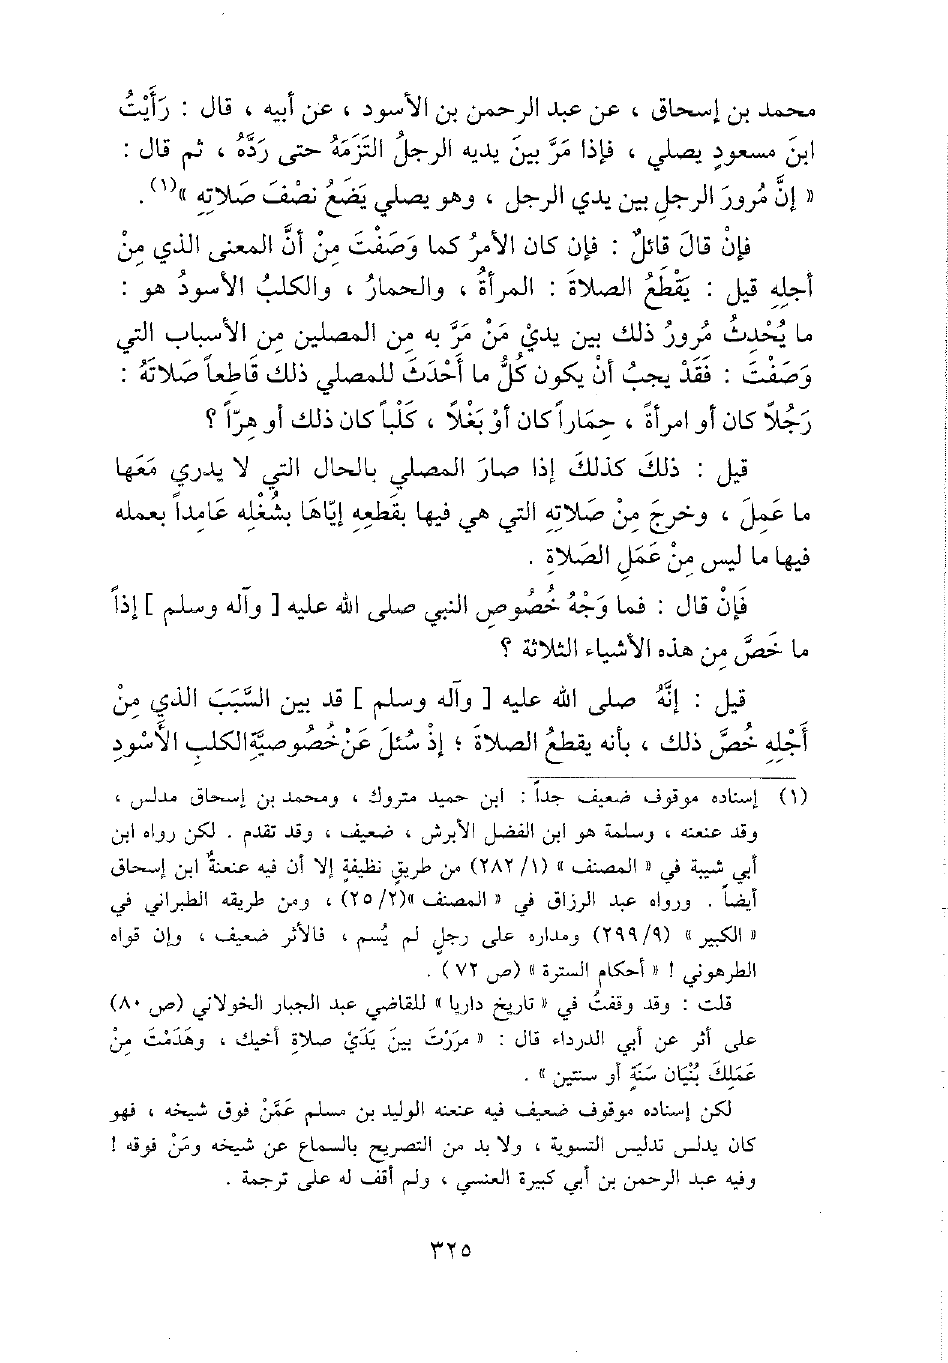 محمد بن إسحاق ، عن عبد الرحمن بن الأسود ، عن أبيه ، قال : رَأَيْتُ
ابنَ مسعودٍ يصلي ، فإذا مَرَّ بينَ يديه الرجلُ التَزَمَهُ حتى رَدَّهُ ، ثم قال :
« إنَّ مُرورَ الرجلِ بين يدي الرجل ، وهو يصلي يَضَعُ نصْفَ صَلاتِهِ »(١) .
فإنْ قالَ قائلٌ : فإن كان الأمرُ كما وَصَفْتَ مِنْ أنَّ المعنى الذي مِنْ
أجلِهِ قيل : يَقْطَعُ الصلاةَ : المرأةُ ، والحمارُ ، والكلبُ الأسودُ هو :
ما يُحْدِثُ مُرورُ ذلك بين يديْ مَنْ مَرَّ به مِن المصلين مِن الأسباب التي
وَصَفْتَ : فَقَدْ يجبُ أنْ يكون كُلُّ ما أَحْدَثَ للمصلي ذلك قَاطعاً صَلاتَهُ :
رَجُلاً كان أو امرأةً ، حِمَاراً كان أوْ بَغْلاً ، كَلْباً كان ذلك أو هِرّاً ؟
قيل : ذلكَ كذلكَ إذا صارَ المصلي بالحال التي لا يدري مَعَها
ما عَمِلَ ، وخرجَ مِنْ صَلاتِهِ التي هي فيها بِقَطعِهِ إيّاهَا بشُغْلِه عَامِداً بعمله
فيها ما ليس مِنْ عَمَلِ الصَلاةِ .
فَإنْ قال : فما وَجْهُ خُصُوصِ النبي صلى الله عليه [ وآله وسلم ] إذاً
ما خَصَّ مِن هذه الأشياء الثلاثة ؟
قيل : إنَّهُ صلى الله عليه [ وآله وسلم ] قد بين السَّبَبَ الذي مِنْ
أَجْلِهِ خُصَّ ذلك ، بأنه يقطعُ الصلاةَ ؛ إذْ سُئلَ عَنْ خُصُوصيَّةِ الكلبِ الأَسْودِ
(١) إسناده موقوف ضعيف جداً : ابن حميد متروك ، ومحمد بن إسحاق مدلس ،
وقد عنعنه ، وسلمة هو ابن الفضل الأبرش ، ضعيف ، وقد تقدم . لكن رواه ابن
أبي شيبة في « المصنف » (١/ ٢٨٢) من طريقٍ نظيفةٍ إلا أن فيه عنعنةُ ابن إسحاق
أيضاً . ورواه عبد الرزاق في « المصنف »(٢/ ٢٥) ، ومن طريقه الطبراني في
« الكبير » (٩/ ٢٩٩) ومداره على رجلٍ لم يُسم ، فالأثر ضعيف ، وإن قواه
الطرهوني ! « أحكام السترة » (ص ٧٢) .
قلت : وقد وقفتُ في « تاريخ داريا » للقاضي عبد الجبار الخولاني (ص ٨٠)
على أثر عن أبي الدرداء قال : « مررْتَ بينَ يَدَيْ صلاةِ أخيك ، وهَدَمْتَ مِنْ
عَمَلِكَ بُنْيَان سَنَةٍ أو سنتين » .
لكن إسناده موقوف ضعيف فيه عنعنه الوليد بن مسلم عَمَّنْ فوق شيخه ، فهو
كان يدلس تدليس التسوية ، ولا بد من التصريح بالسماع عن شيخه ومَنْ فوقه !
وفيه عبد الرحمن بن أبي كبيرة العنسي ، ولم أقف له على ترجمة .
٣٢٥